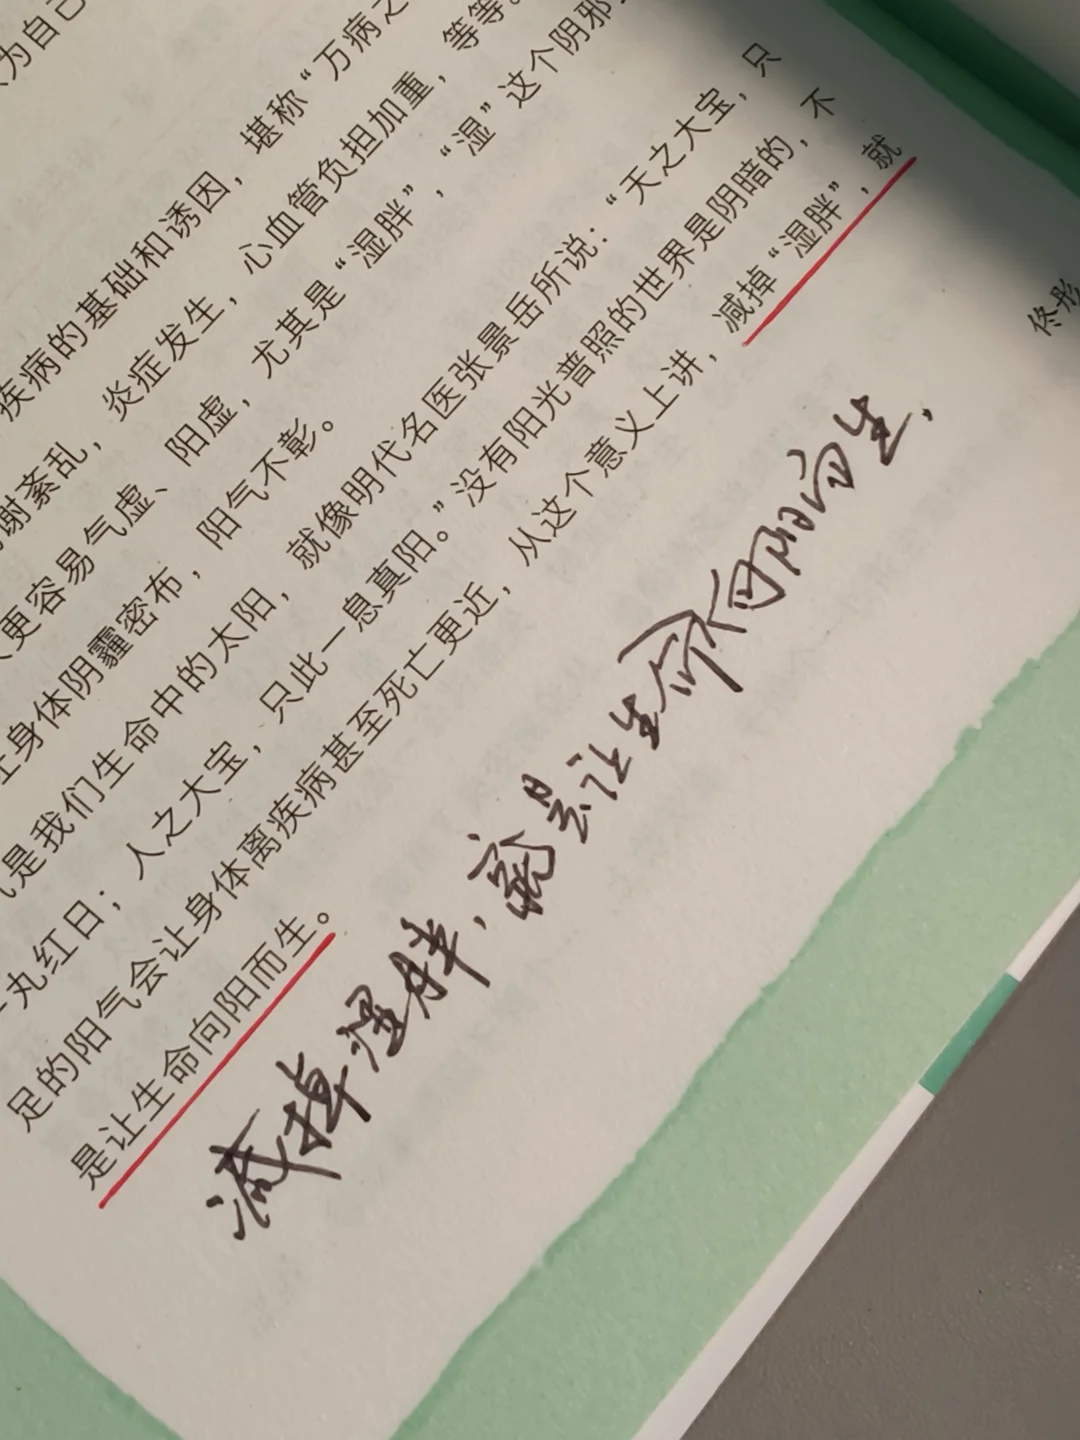 为自己
疾病的基础和诱因，堪称“万病之
谢紊乱，炎症发生，心血管负担加重，等等。
更容易气虚、阳虚，尤其是“湿胖”，“湿”这个阴邪
让身体阴霾密布，阳气不彰。
气是我们生命中的太阳，就像明代名医张景岳所说：“天之大宝，只
一丸红日；人之大宝，只此一息真阳。”没有阳光普照的世界是阴暗的，不
足的阳气会让身体离疾病甚至死亡更近，从这个意义上讲，减掉“湿胖”，就
是让生命向阳而生。
佟彤
减掉湿胖，就是让生命向阳而生，